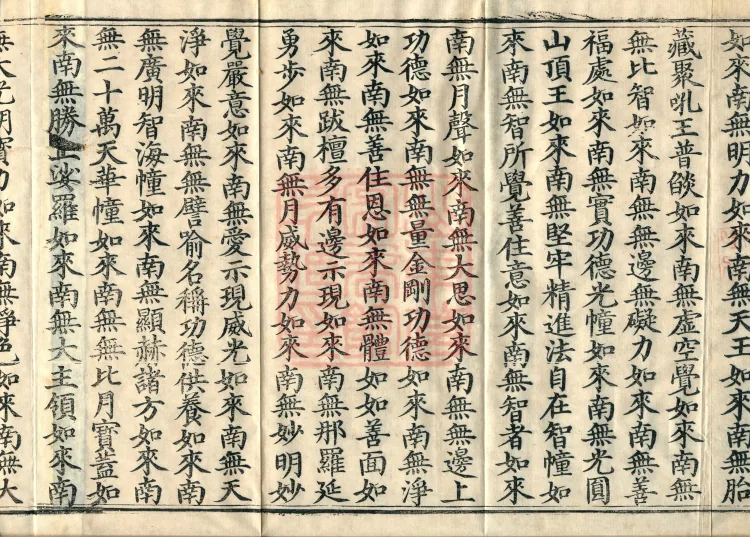 如來南無明力如來南無天王如來南無胎
藏聚吼王普燄如來南無虛空覺如來南無
無比智如來南無無邊無礙力如來南無善
福處如來南無實功德光幢如來南無光圓
山頂王如來南無堅牢精進法自在智幢如
來南無智所覺善住意如來南無智者如來
南無月聲如來南無大思如來南無無邊上
功德如來南無無量金剛功德如來南無淨
如來南無善住恩如來南無體如如善面如
來南無跋檀多有邊示現如來南無那羅延
勇步如來南無月威勢力如來南無妙明妙
覺嚴意如來南無愛示現威光如來南無天
淨如來南無無譬喻名稱功德供養如來南
無廣明智海幢如來南無顯赫諸方如來南
無二十萬天華幢如來南無無比月寶蓋如
來南無勝上娑羅如來南無大主領如來南
無大光明寶力如來南無淨色如來南無大